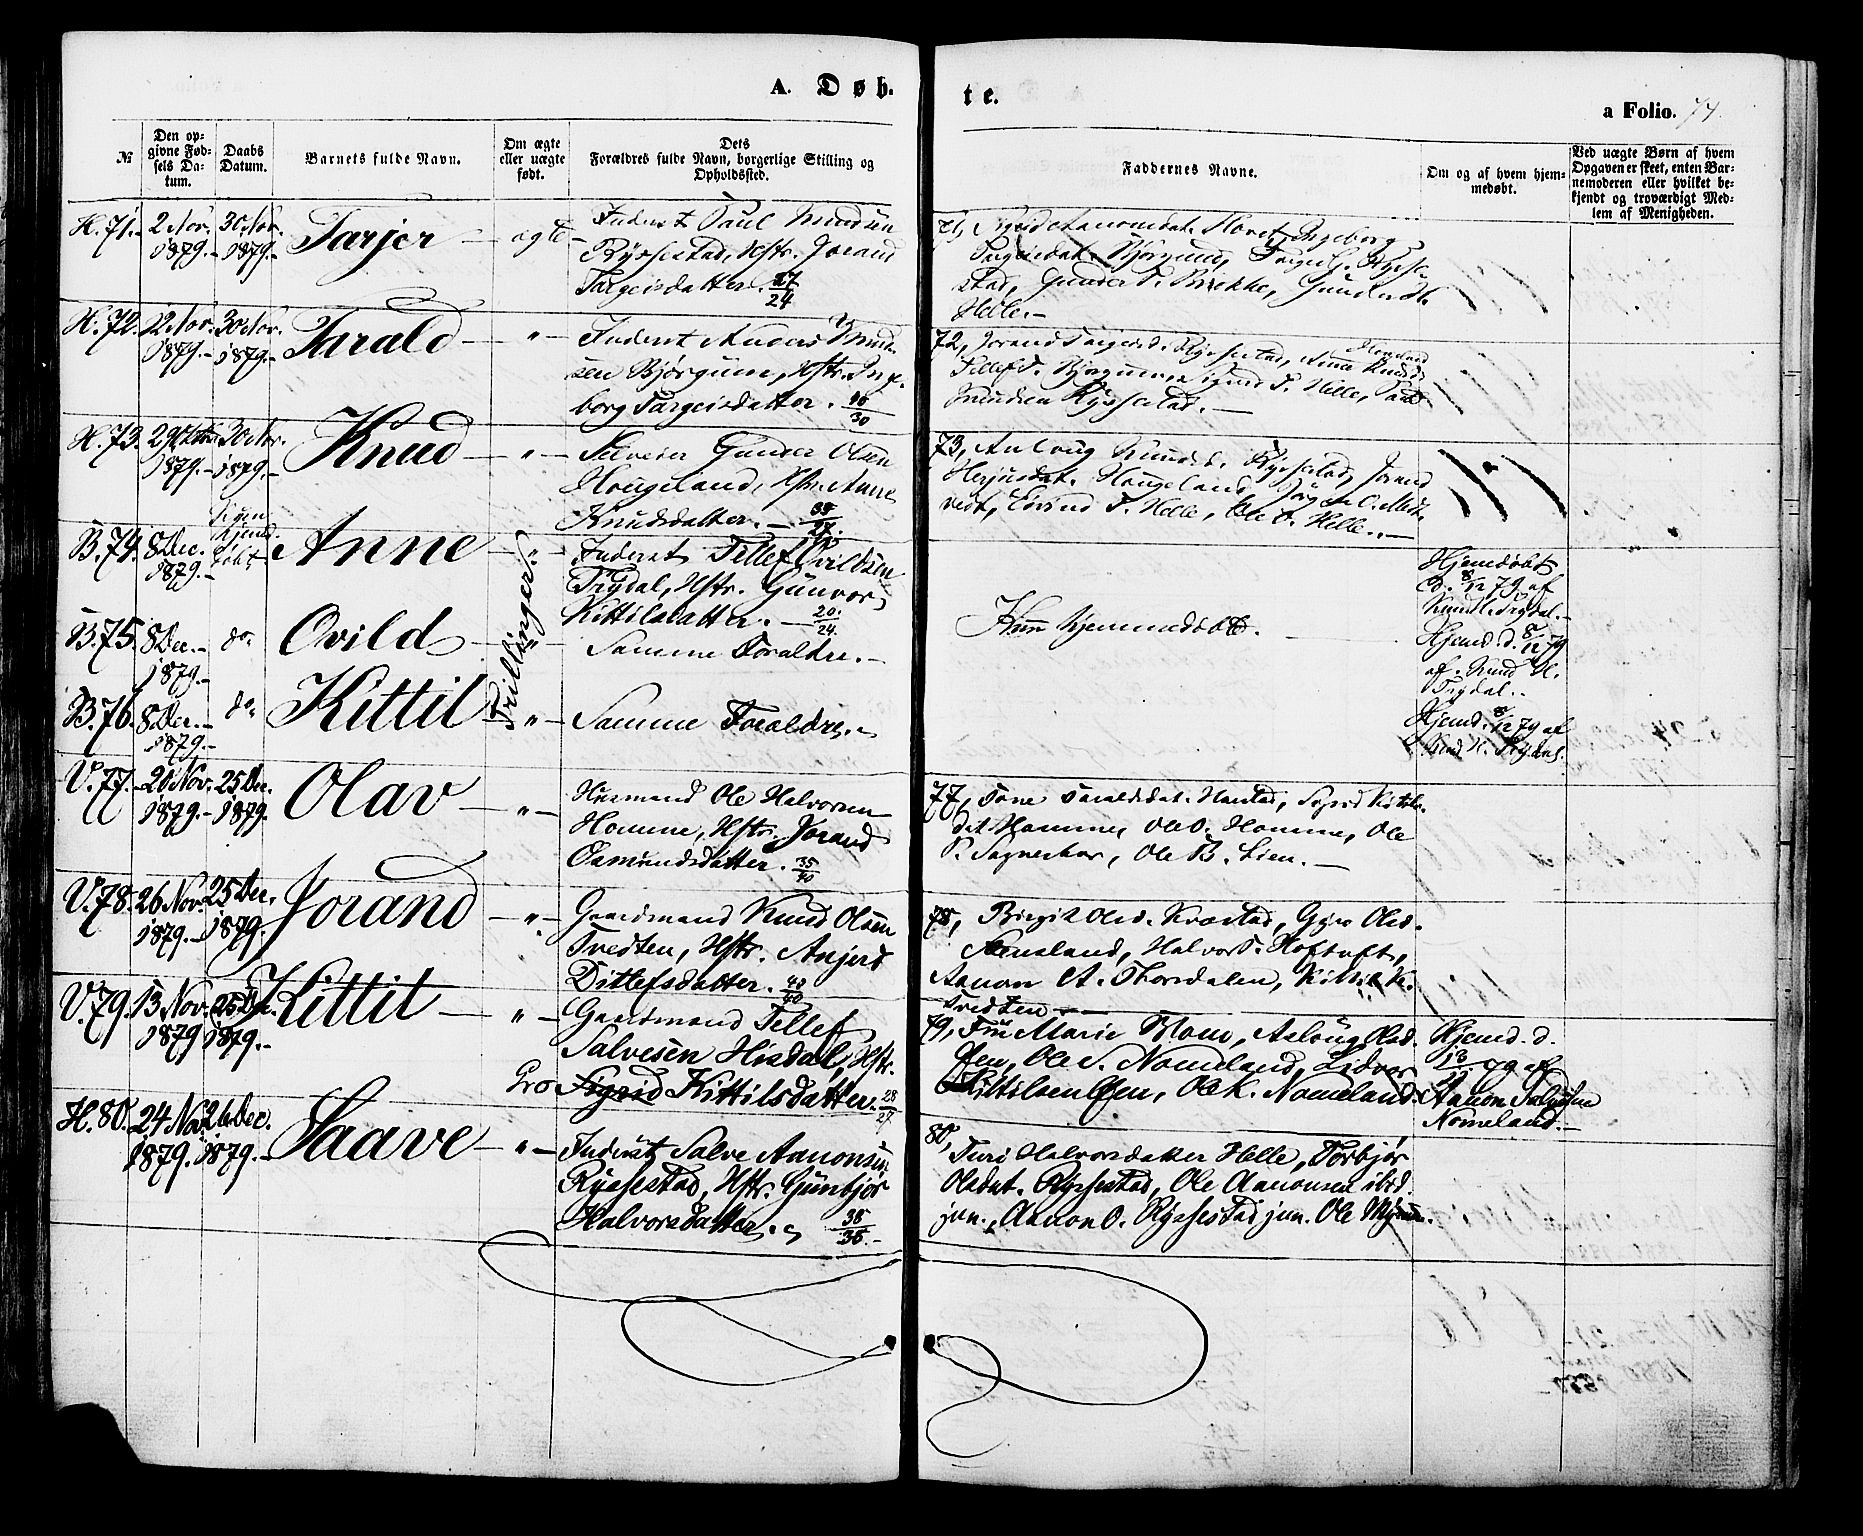 A. Døb.
te.
a Folio. 74
№
Den op-
givne Fød-
sels Da-
tum.
Daabs
Datum.
Barnets fulde Navn.
Om ægte
eller uægte
født.
Dets
Forældres fulde Navn, borgerlige Stilling og
Opholdssted.
Faddernes Navne.
Om og af hvem hjem-
medøbt.
Ved uægte Børn af hvem
Opgaven er skeet, enten Bar-
nemoderen eller hvilket be-
kjendt og troværdigt Med-
lem af Menigheden.
H. 71. 2 Nov. 1879. 30 Nov. 1879. Tarjer ægte
Inderst Paul Knudsen
Rysestad, Hstr. Jorand
Targeisdatter. 27/24
71, Sigrid Aanonsdat. Ingeborg
Targeisdat. Bjørgum, Rysse-
stad, Gunder Birkke, Gunder
Helle.
H. 72. 12 Nov. 1879. 30 Nov. 1879. Tarald "
Inderst Anders Knud-
sen Bjørgum, Hstr. Inge-
borg Targeisdatter. 30
72, Jorand Targeisd. Ryssestad, Anne Knudsd.
Tellef Bjørgum, T. Helle, Paul
Knudsen Ryssestad.
H. 73. 29 1879. 30 Nov. 1879. Knud "
Selveier Gunder Olsen
Hougeland, Hstr. Anne
Knudsdatter. 35/27.
73, Aaloug Knudsd. Rysestad, Jorand
Herjusdat. Hougeland, Jørgen
vedt, Eivind T. Helle, Ole O. Helle.
B. 74. 8 Dec. 1879. Kun hjemd. døbt Anne "
Inderst Tellef Ovildsen
Trydal, Hstr. Gunvor
Kittilsdatter. 20/24.
Kun hjemmedøbt.
Hjemdøbt
d. 8/12 79 af
Knud Trydal.
Trillinger.
B. 75. 8 Dec. 1879. do Ovild "
Samme Forældre.
Hjemd. d. 8/12 79
af Knud H.
Trydal.
B. 76. 8 Dec. 1879. do Kittil "
Samme Forældre.
Hjemd. 8/12 79 af
Knud H. Trydal.
V. 77. 20 Nov. 1879. 25 Dec. 1879. Olav "
Husmand Ole Halvorsen
Homme, Hstr. Jorand
Osmundsdatter. 35/40
77, Tone Taraldsdat. Harstad, Sigrid Kittils-
dat. Homme, Ole O. Homme, Ole
P. Sagneskar, Ole B. Lien.
V. 78. 26 Nov. 1879. 25 Dec. 1879. Jorand "
Gaardmand Knud Olsen
Tvedten, Hstr. Anjerd
Ditlefsdatter. 40/40
78, Birgit Olsd. Kvæstad, Gyro Olsd.
Nomeland, Halvor T. Hoftuft,
Aanon A. Thorsdalen, Kittil K.
Tvedten
V. 79. 13 Nov. 1879. 25 Dec. 1879. Kittil "
Gaardmand Tellef
Salvesen Hisdal, Hstr.
Gro Sigrid Kittilsdatter. 28/27
79, Fru Marie Blom, Aslaug Olsd.
Øen, Ole S. Nomeland, Lidvor
Kittilsen Øen, Ole K. Nomeland.
Hjemd. d.
13/ 79 af
Aanon
Nomeland.
H. 80. 24 Nov. 1879. 26 Dec. 1879. Saave "
Inderst Salve Aanonsen
Ryssestad, Hstr. Gunbjør
Halvorsdatter. 38/35.
80,
Turi Halvorsdatter Helle, Torbjør
Olsdat. Ryssestad, Ole Aanonsen ibid.
jun., Aanon O. Ryssestad jun. Ole